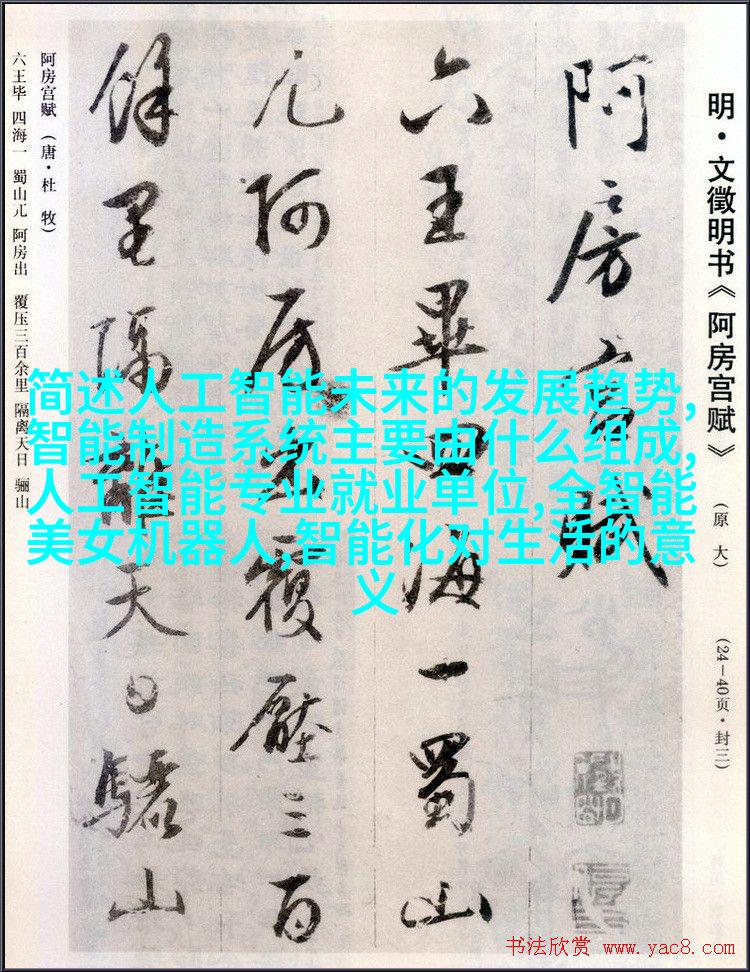 明·文徵明书《阿房宫赋》
(原 大)
(24—40页·封三)
阿房宫賦
六王畢四海一蜀山
兀阿房出覆壓三百
餘里隔離天日驪山
阿房宫赋（唐·杜 牧）
六王毕 四海一 蜀山兀 阿房出 覆压三百余里 隔离天日 骊山
简述人工智能未来的发展趋势,
智能制造系统主要由什么组成,
人工智能专业就业单位,全智能
美女机器人,智能化对生活的意
义
书法欣赏 www.yac8.com